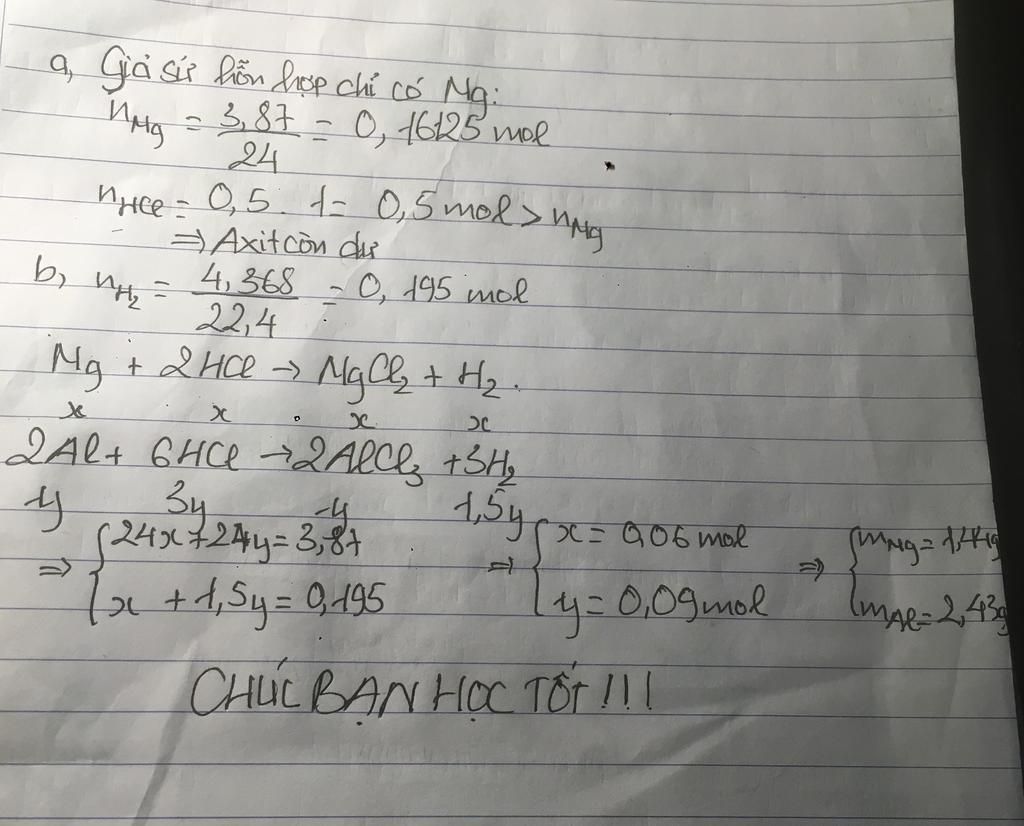 a, Giả sử hỗn hợp chỉ có Mg:
nMg = 3,87/24 = 0,16125 mol
nHCl = 0,5. 1 = 0,5 mol > nMg
⇒ Axit còn dư
b, nH2 = 4,368/22,4 = 0,195 mol
Mg + 2HCl → MgCl2 + H2.
x x x x
2Al + 6HCl → 2AlCl3 + 3H2
y 3y y 1,5y
⇒ { 24x + 27y = 3,87 ⇒ { x = 0,06 mol ⇒ { mMg = 1,44g
x + 1,5y = 0,195 y = 0,09 mol mAl = 2,43g
CHÚC BẠN HỌC TỐT !!!